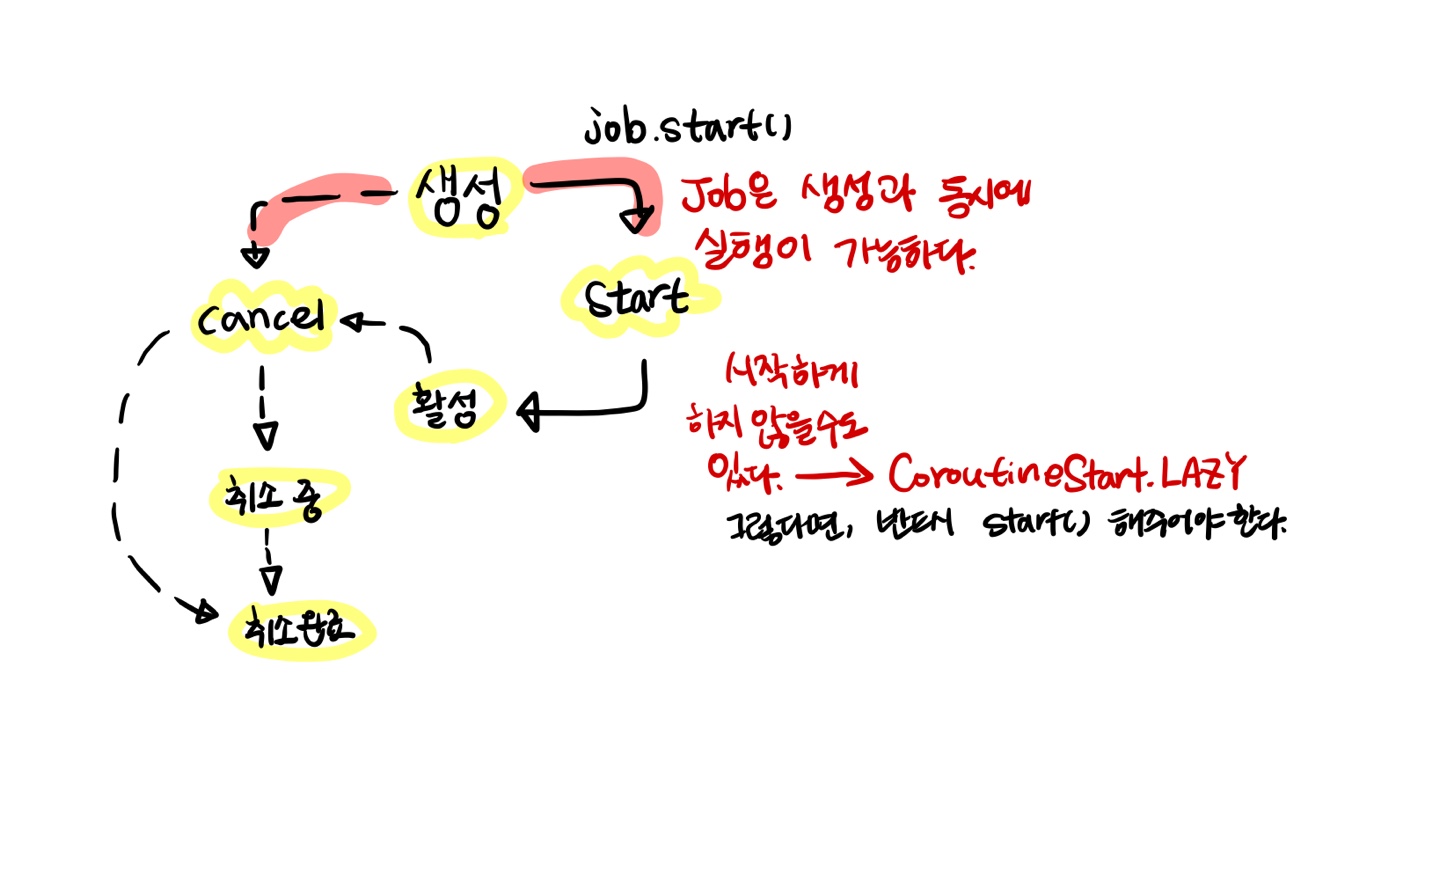 job.start()
생성
Job은 생성과 동시에
실행이 가능하다.
Start
cancel
시작하게
활성
하지 않을수도
있다. → CoroutineStart.LAZY
취소 중
그렇다면, 반드시 start() 해주어야 한다.
취소완료